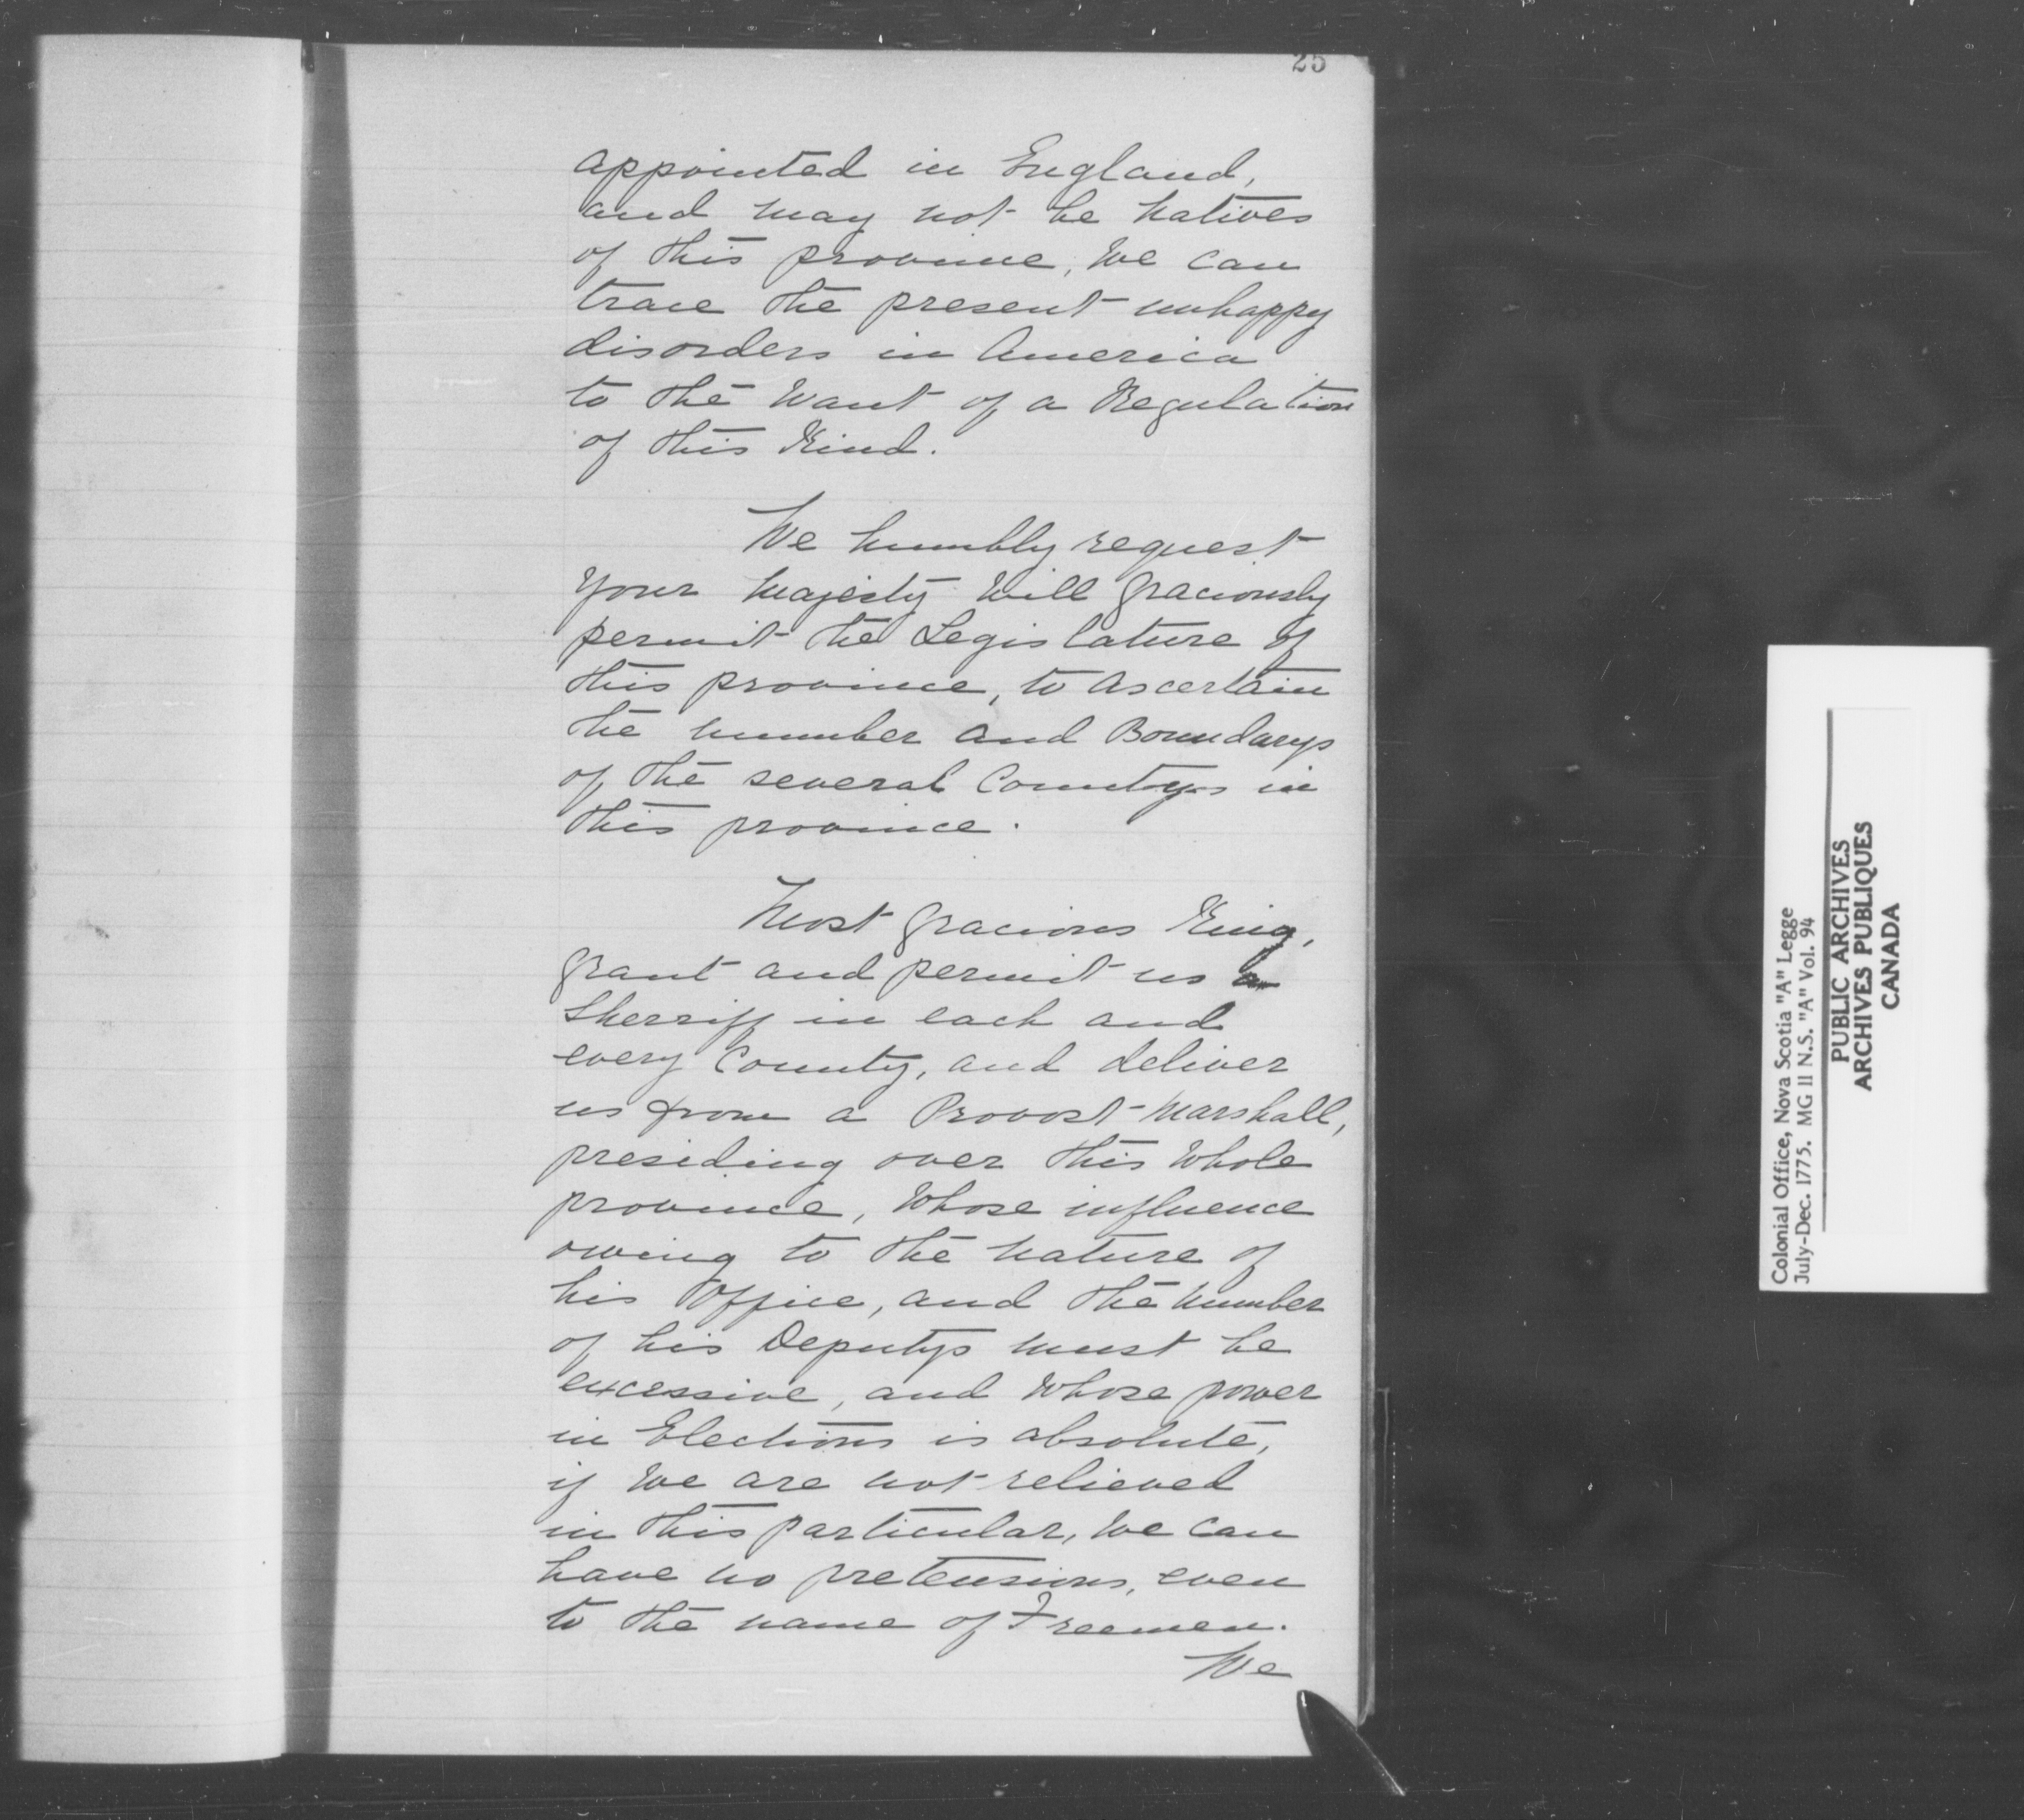 25
appointed in England,
and may not be natives
of this province, We can
trace the present unhappy
disorders in America
to the Want of a Regulation
of this Kind.
We humbly request
Your Majesty will graciously
permit the Legislature of
this province, to ascertain
the number and Boundarys
of the several Countys in
this province.
Most gracious King,
grant and permit us a
Sherriff in each and
every County, and deliver
us from a Provost-Marshall,
presiding over this Whole
province, Whose influence
owing to the nature of
his Office, and the number
of his Deputys must be
excessive, and Whose power
in Elections is absolute,
if We are not relieved
in this particular, We can
have no pretensions, even
to the name of Freemen.
We
Colonial Office, Nova Scotia "A" Legge
July-Dec. 1775. MG II N.S. "A" Vol. 94
PUBLIC ARCHIVES
ARCHIVES PUBLIQUES
CANADA